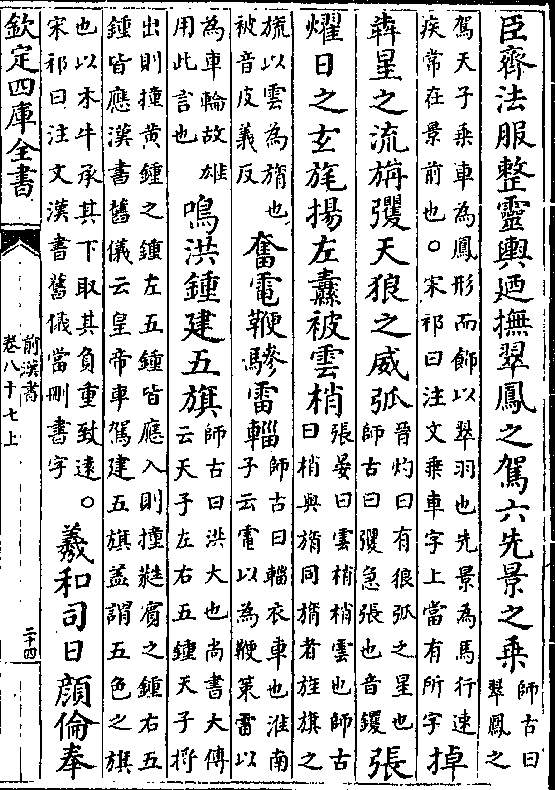 臣齊法服整靈輿廼撫翠鳳之駕六先景之乗
師古曰
翠鳳之
駕天子乗車為鳳形而飾以翠羽也先景為馬行速
疾常在景前也○宋祁曰注文乗車字上當有所字
掉
犇星之流旃彏天狼之威弧
晉灼曰有狼弧之星也
師古曰彏急張也音钁
張
燿日之玄旄揚左纛被雲梢
張晏曰雲梢梢雲也師古
曰梢與旓同旓者旌旗之
旒以雲為旓也
被音皮義反
奮電鞭驂雷輜
師古曰輜衣車也淮南
子云電以為鞭策雷以
為車輪故雄
用此言也
鳴洪鍾建五旗
師古曰洪大也尚書大傳
云天子左右五鍾天子将
出則撞黄鍾之鍾左五鍾皆應入則撞蕤賔之鍾右五
鍾皆應漢書舊儀云皇帝車駕建五旗葢謂五色之旗
也以木牛承其下取其負重致遠○
宋祁曰注文漢書舊儀當刪書字
羲和司日顔倫奉
欽定四庫全書
前漢書
卷八十七上
二十四